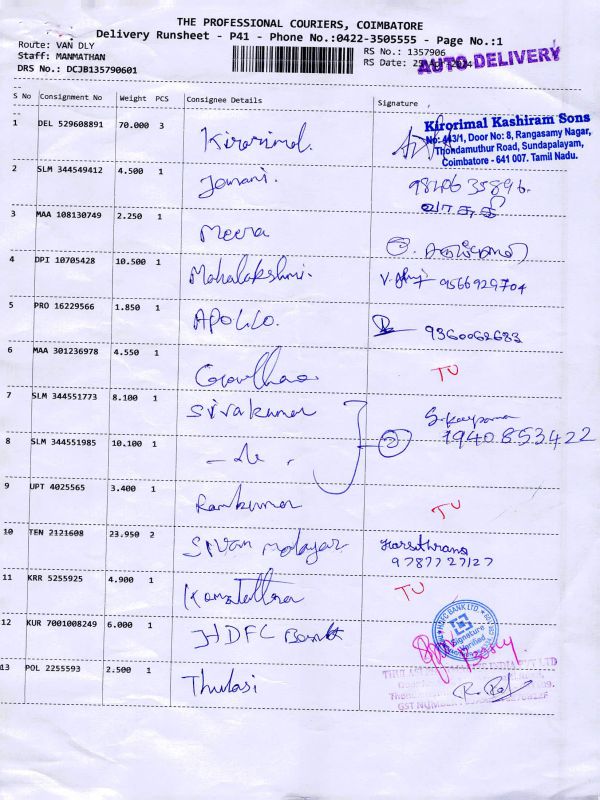 THE PROFESSIONAL COURIERS, COIMBATORE
Delivery Runsheet - P41 - Phone No.:0422-3505555 - Page No.:1
Route: VAN DLY
Staff: MANMATHAN
DRS No.: DCJB135790601
RS No.: 1357906
RS Date:
AUTO DELIVERY
S No Consignment No Weight PCS Consignee Details Signature
1 DEL 529608891 70.000 3 Kirorimal.
Kirorimal Kashiram Sons
No: 443/1, Door No: 8, Rangasamy Nagar,
Thondamuthur Road, Sundapalayam,
Coimbatore - 641 007. Tamil Nadu.
2 SLM 344549412 4.500 1
3 MAA 108130749 2.250 1 Meera
4 DPI 10705428 10.500 1 Mahalakshmi. 9566929704
5 PRO 16229566 1.850 1 APOLLO. 9360062683
6 MAA 301236978 4.550 1 TU
7 SLM 344551773 8.100 1 Sivakumar
8 SLM 344551985 10.100 1 2 7940853422
9 UPT 4025565 3.400 1 Ramkumar TU
10 TEN 2121608 23.950 2
9787727127
11 KRR 5255925 4.900 1 TU
12 KUR 7001008249 6.000 1 HDFC Bank
HDFC BANK LTD.
Signature
Verified
13 POL 2255593 2.500 1 Thulasi